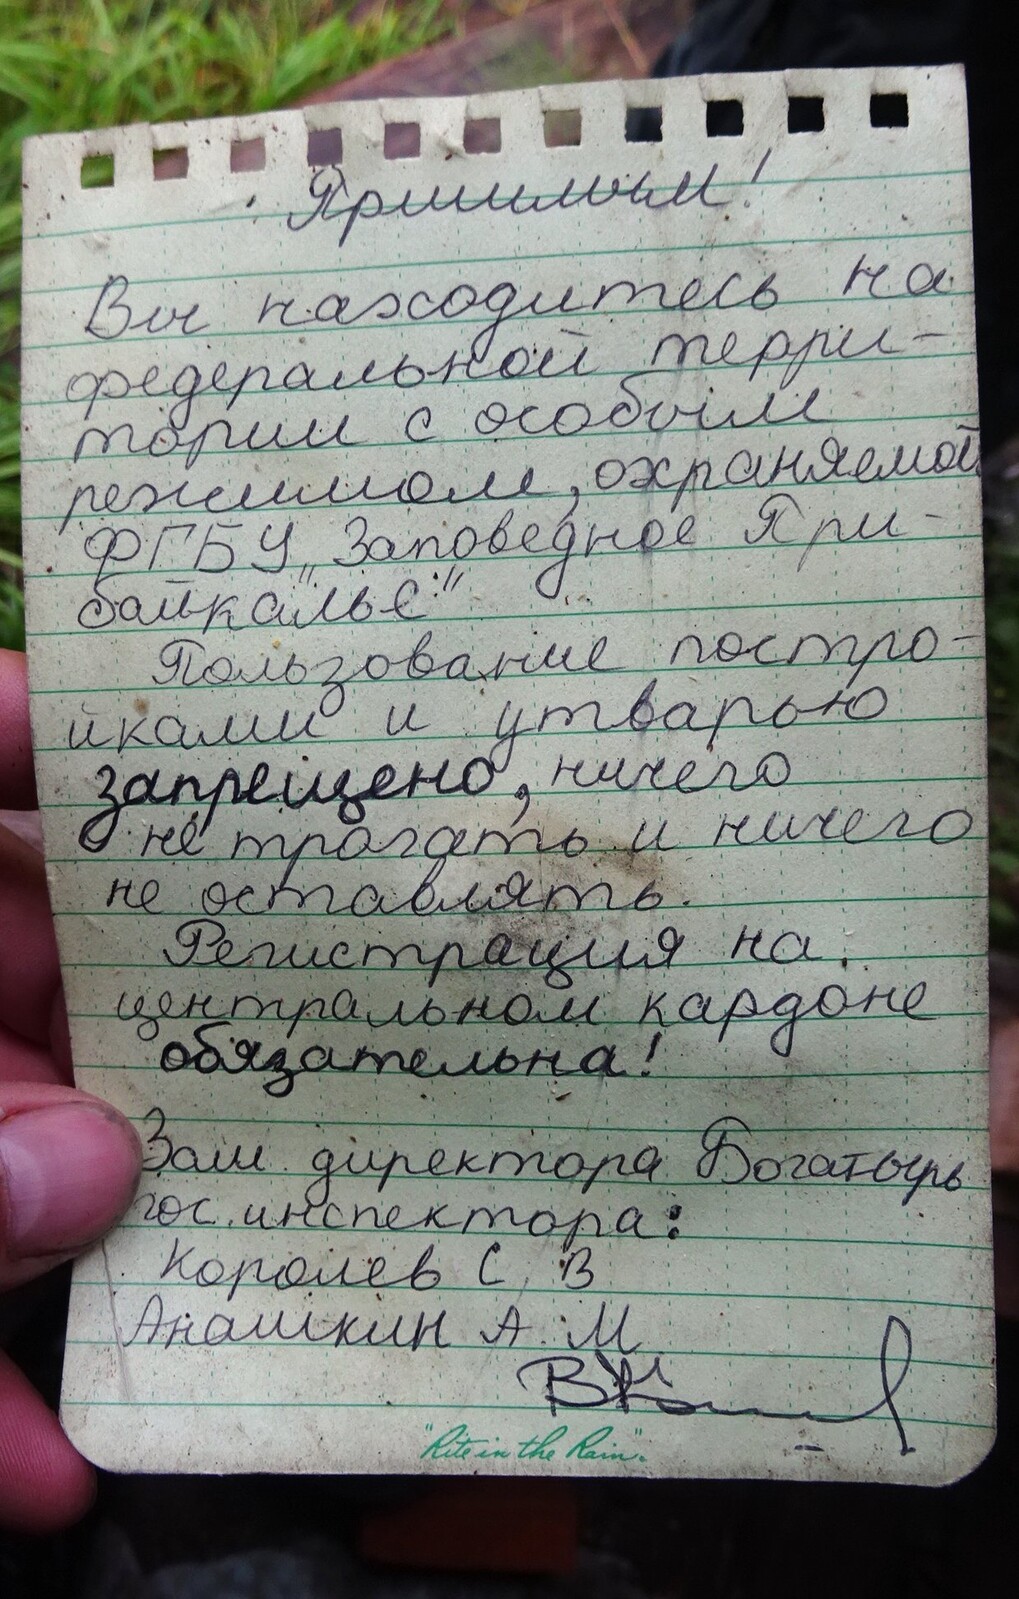 Пришлым!
Вы находитесь на
федеральной терри-
тории с особым
режимом, охраняемой
ФГБУ „Заповедное При-
байкалье"
Пользование постро-
йками и утварью
запрещено, ничего
не трогать и ничего
не оставлять.
Регистрация на
центральном кардоне
обязательна!
Зам. директора Богатырь
гос. инспектора:
Королев С. В
Анашкин А. М.
"Rite in the Rain".